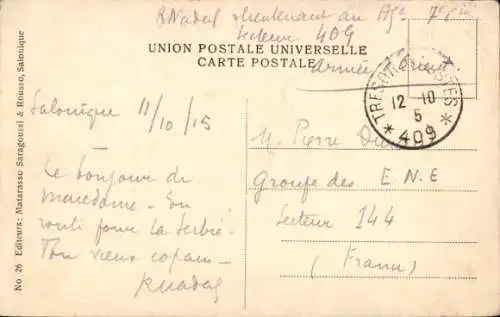 RNadal Lieutenant au
Secteur 409
Armée d'Orient
UNION POSTALE UNIVERSELLE
CARTE POSTALE
TRESOR ET POSTES
12 10
5
* 409 *
Salonique 11/10/15
Le bonjour de
Macedoine - En
route pour la Serbie.
Ton vieux copain -
RNadal
M. Pierre
Groupe des E.N.E
Secteur 144
(France)
No 26 Editeurs: Matarasso Saragoussi & Rousso, Salonique